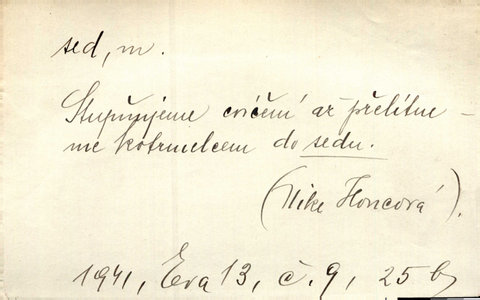 sed, m.
Stupňujeme cvičení až přelítne-
me kotrmelcem do sedu.
(Mike Honcová).
1941, Eva 13, č. 9, 25 b